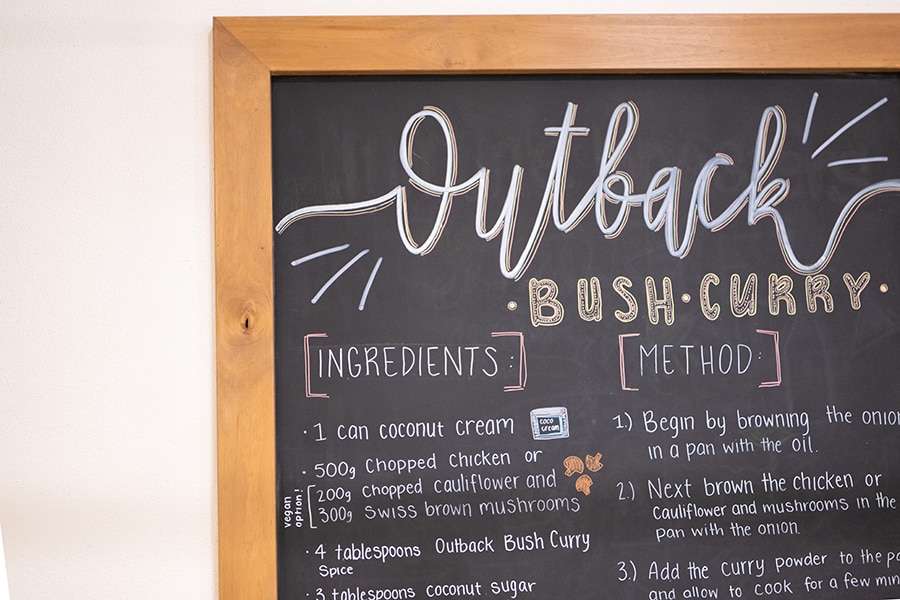 Outback
BUSH · CURRY
INGREDIENTS:
· 1 can coconut cream
coco
cream
· 500g Chopped Chicken or
200g chopped cauliflower and
300g Swiss brown mushrooms
vegan
option!
· 4 tablespoons Outback Bush Curry
Spice
· 3 tablespoons coconut sugar
METHOD:
1.) Begin by browning the onion
in a pan with the oil.
2.) Next brown the chicken or
Cauliflower and mushrooms in the
pan with the onion.
3.) Add the curry powder to the
and allow to cook for a few